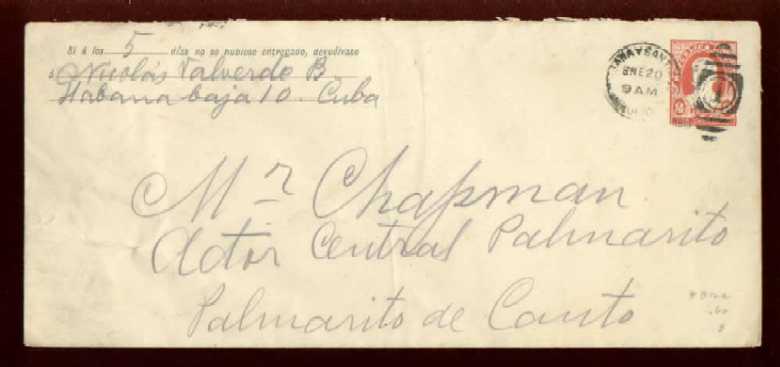 Si á los 5 días no se pudiese entregado, devuélvase
á Nicolás Valverde B.
Habana baja 10. Cuba
ENE 20
9 AM
Mr Chapman
Actor Central Palmarito
Palmarito de Cauto